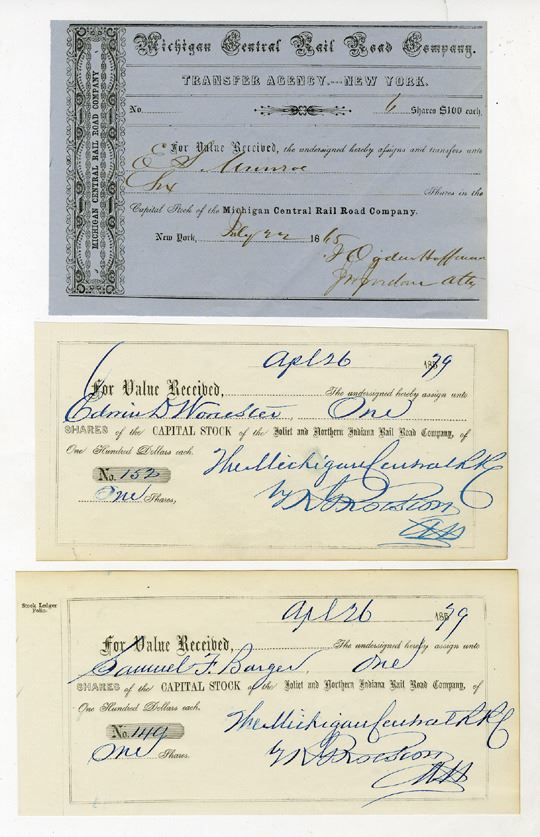 MICHIGAN CENTRAL RAIL ROAD COMPANY
Michigan Central Rail Road Company.
TRANSFER AGENCY.---NEW YORK.
No. 6 Shares $100 each,
For Value Received, the undersigned hereby assigns and transfers unto
E S Munroe
Six Shares in the
Capital Stock of the Michigan Central Rail Road Company.
New York, July 22 1865
Ogden Hoffman
Atty
Apl 26 18679
For Value Received, The undersigned hereby assign unto
Edwin D Worcester, One
SHARES of the CAPITAL STOCK of the Joliet and Northern Indiana Rail Road Company, of
One Hundred Dollars each.
No. 152 The Michigan Central RR Co
One Shares,
Stock Ledger
Folio.
Apl 26 18679
For Value Received, The undersigned hereby assign unto
Samuel F. Barger One
SHARES of the CAPITAL STOCK of the Joliet and Northern Indiana Rail Road Company, of
One Hundred Dollars each.
No. 149 The Michigan Central RR Co
One Shares.